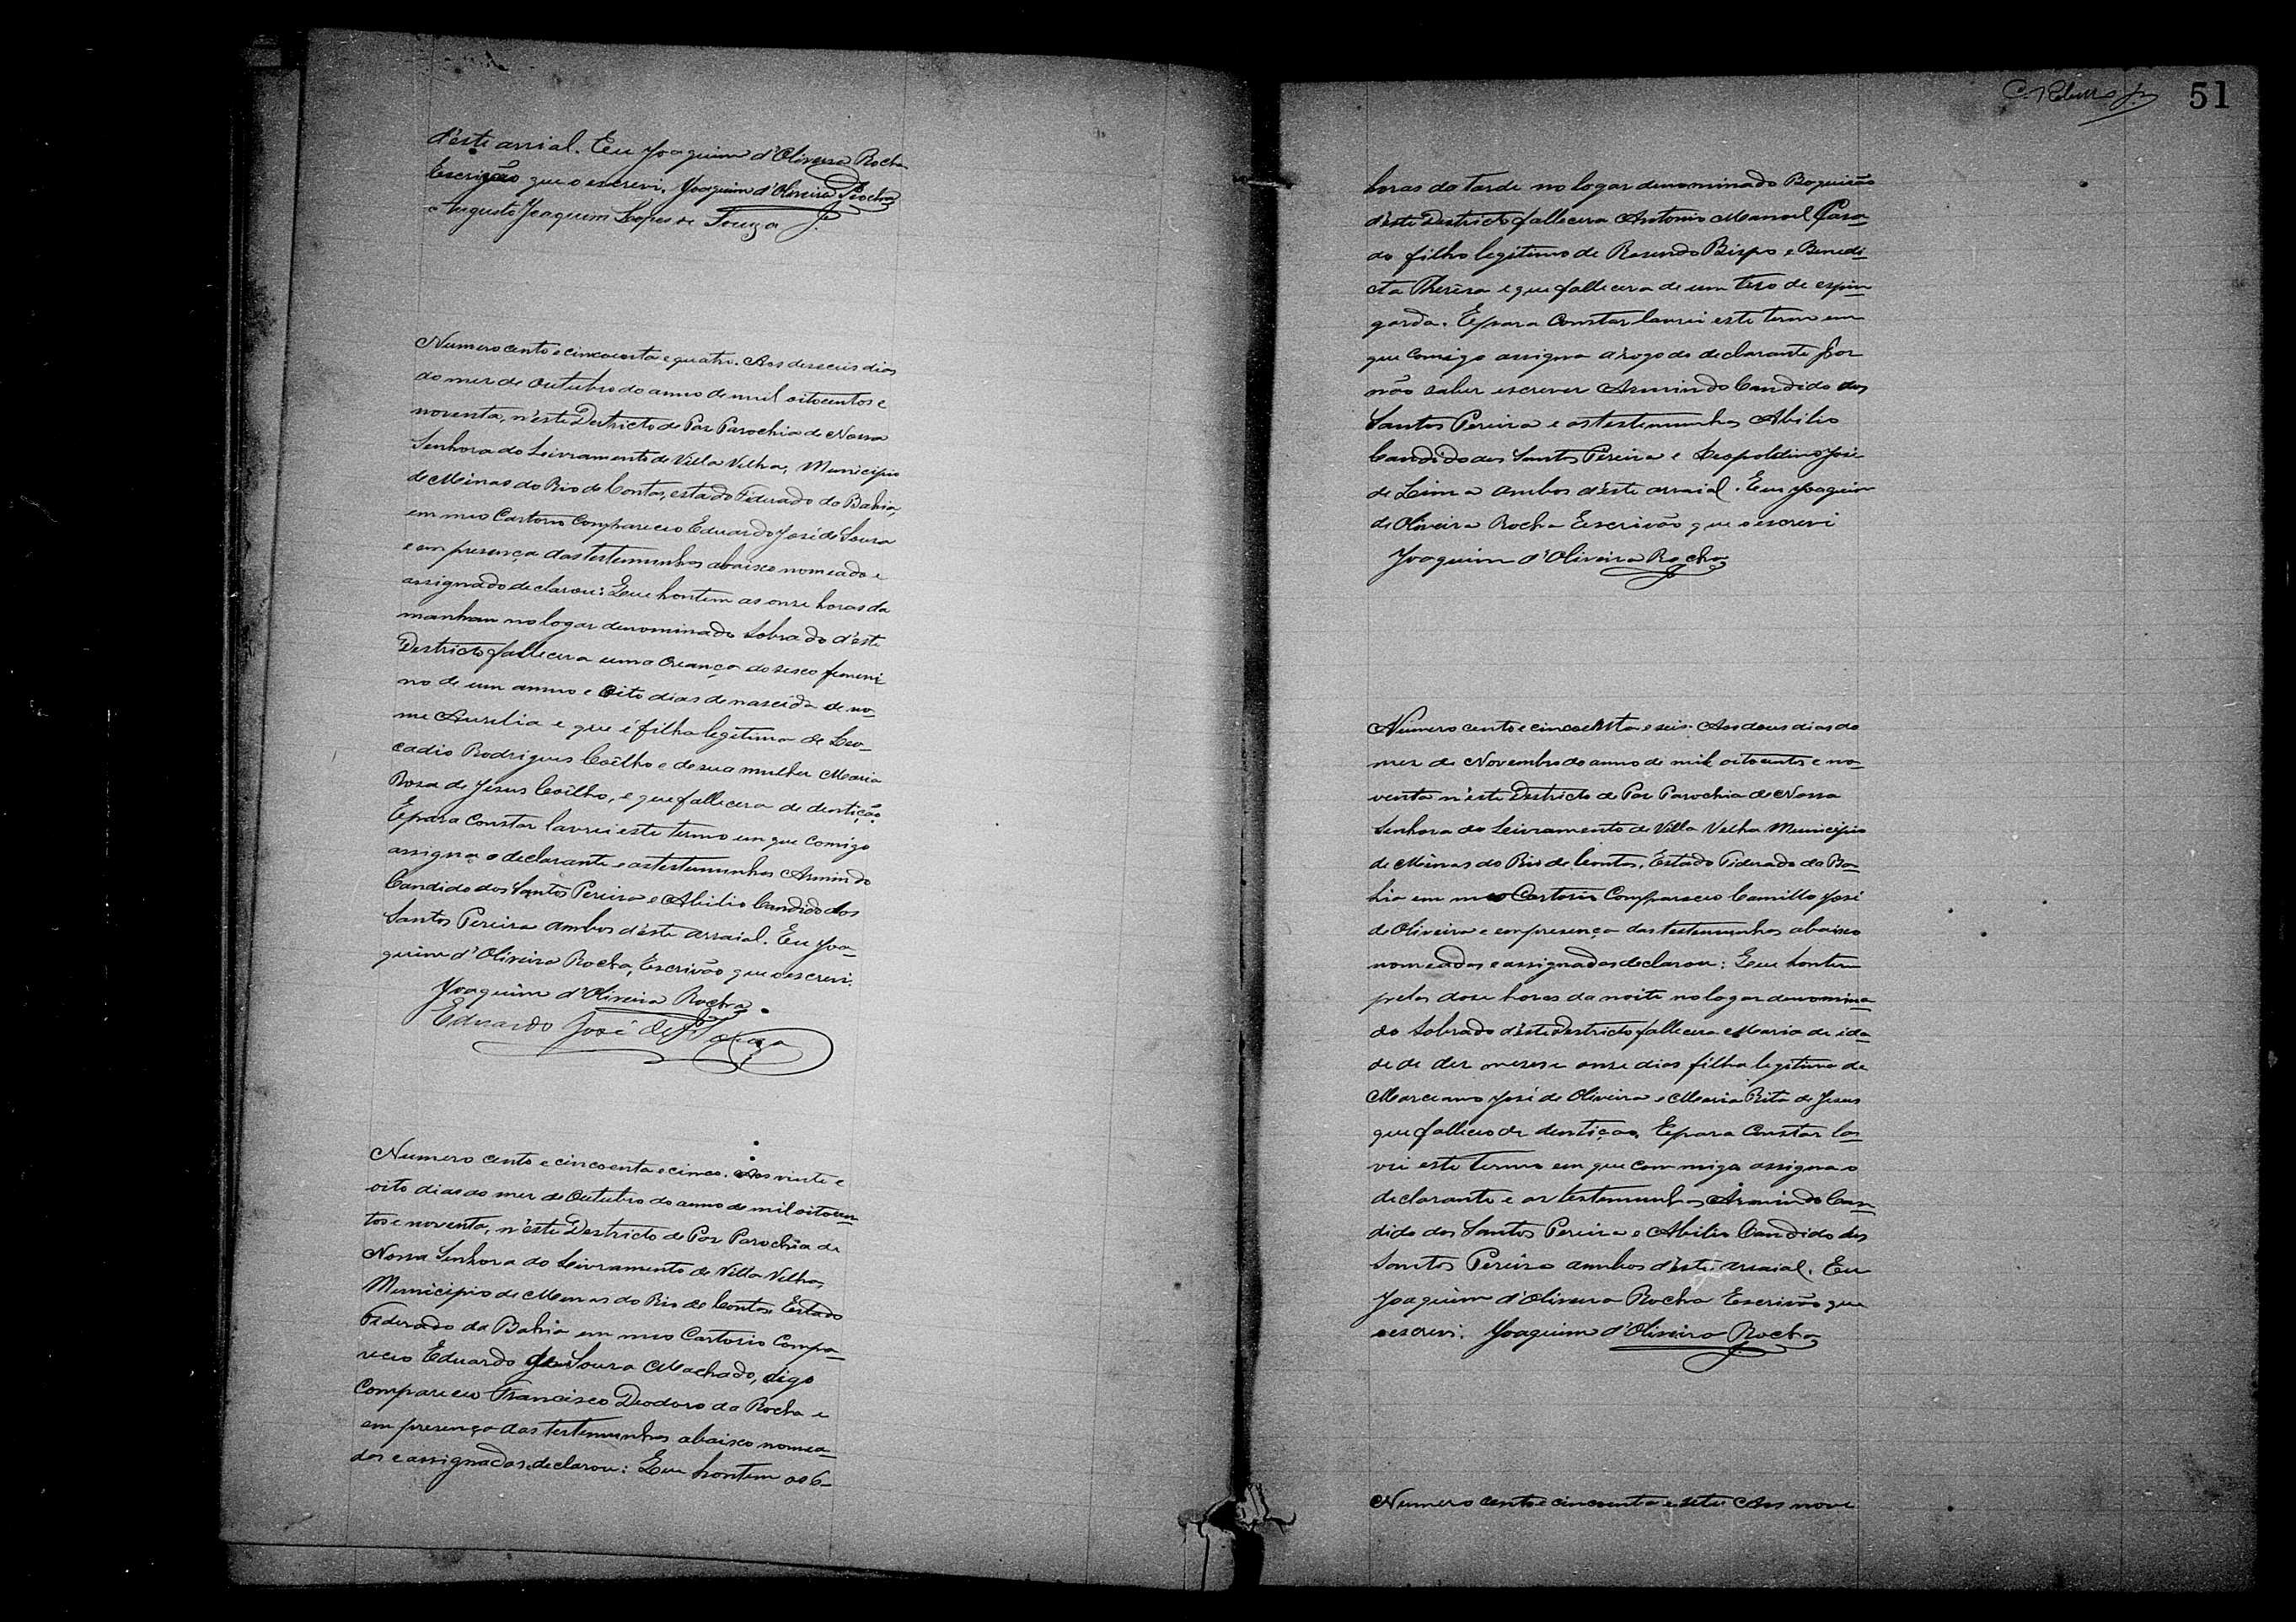 d'este arrial. Eu Joaquim d'Oliveira Rocha
Escrivão que o escrevi. Joaquim d'Oliveira Rocha
Augusto Joaquim Lopes de Souza
Numero cento e cincoenta e quatro. Aos desseis dias
do mez de Outubro do anno de mil oitocentos e
noventa, n'este Destricto de Paz Parochia de Nossa
Senhora do Livramento de Villa Velha, Municipio
de Minas do Rio de Contas, estado Federado da Bahia,
em meo Cartorio Compareceo Eduardo José de Souza
e em presença das testemunhas abaixo nomeado e
assignado declarou: Que hontem as onze horas da
manham no logar denominado Sobrado d'este
Destricto fallecera uma creança do sexo femeni
no de um anno e oito dias de nascida de no-
me Aurelia e que é filha legitima de Leo-
cadio Rodrigues Coêlho e de sua mulher Maria
Rosa de Jesus Coêlho, e que fallecera de dentição
E para Constar lavrei este termo em que comigo
assigna o declarante e as testemunhas Armindo
Candido dos Santos Pereira e Abilio Candido dos
Santos Pereira ambos d'este arraial. Eu Joa-
quim d'Oliveira Rocha, Escrivão que o escrevi.
Joaquim d'Oliveira Rocha
Eduardo José de Souza
Numero cento e cincoenta e cinco. Aos vinte e
oito dias do mez de Outubro do anno de mil oitocen
tos e noventa, n'este Destricto de Paz Parochia de
Nossa Senhora do Livramento de Villa Velha,
Municipio de Minas do Rio de Contas Estado
Federado da Bahia em meo Cartorio Compa-
receo Eduardo de Souza Machado, digo
compareceo Francisco Deodoro da Rocha e
em presença das testemunhas abaixo nomea-
dos e assignados declarou: Que hontem as 6-
51
horas da tarde no logar denominado Boqueirão
d'este Destricto fallecera Antonio Manoel Casa-
do filho legitimo de Rosendo Bispo e Benedi-
cta Thereza e que fallecera de um tiro de espin-
garda. E para Constar lavrei este termo em
que comigo assigna a rogo do declarante por
não saber escrever Armindo Candido dos
Santos Pereira e as testemunhas Abilio
Candido dos Santos Pereira e Leopoldino José
de Lima ambos d'este arraial. Eu Joaquim
de Oliveira Rocha Escrivão que o escrevi
Joaquim d'Oliveira Rocha
Numero cento e cincoenta e seis. Aos dous dias do
mez de Novembro do anno de mil oitocentos e no-
venta n'este Destricto de Paz Parochia de Nossa
Senhora do Leivramento de Villa Velha Municipio
de Minas do Rio de Contas, Estado Federado da Ba-
hia em meo Cartorio Compareceo Camillo José
de Oliveira e em presença das testemunhas abaixo
nomeadas e assignadas declarou: Que hontem
pelas doze horas da noite no logar denomina-
do Sobrado d'este Destricto fallecera Maria de ida-
de de dez meses e onze dias filha legitima de
Marciano José de Oliveira e Maria Rita de Jesus
que falleceo de dentição. E para Constar la-
vrei este termo em que commigo assigna o
declarante e as testemunhas Armindo Can-
dido dos Santos Pereira e Abilio Candido dos
Santos Pereira ambos d'este arraial. Eu
Joaquim d'Oliveira Rocha Escrivão que
o escrevi. Joaquim d'Oliveira Rocha
Numero cento e cincoenta e sete Aos nove